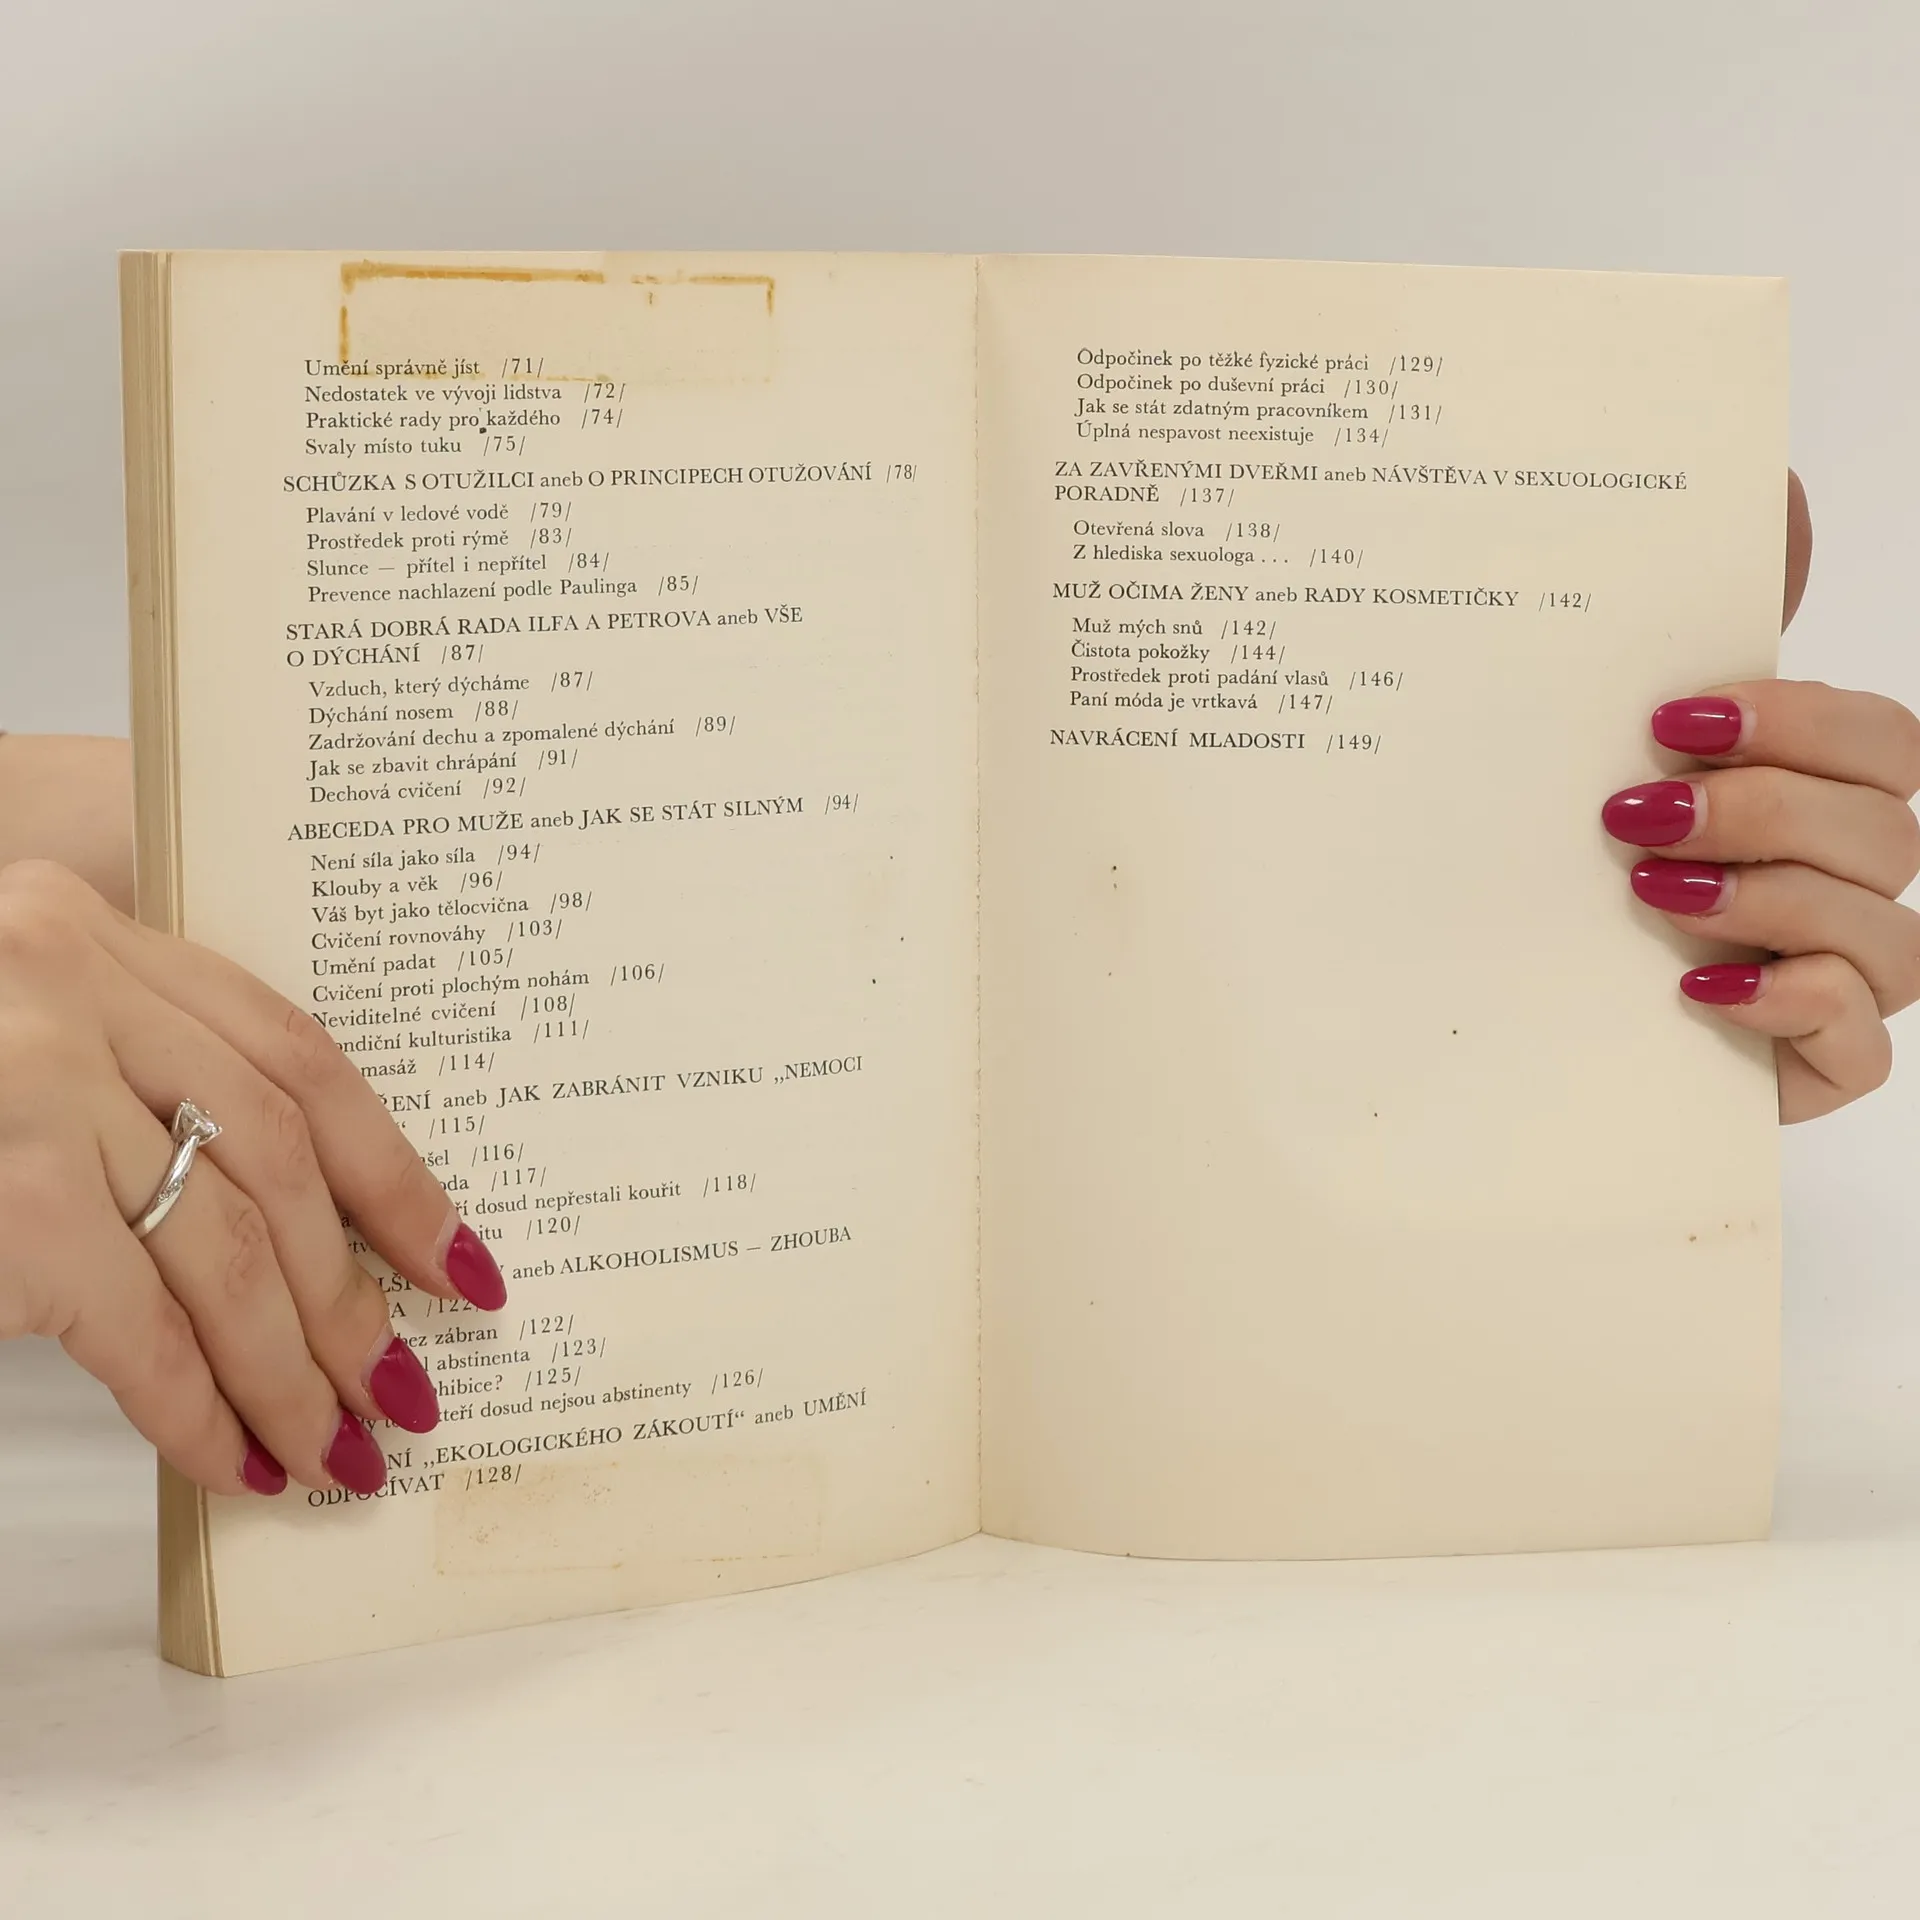 Umění správně jíst /71/
Nedostatek ve vývoji lidstva /72/
Praktické rady pro každého /74/
Svaly místo tuku /75/
SCHŮZKA S OTUŽILCI aneb O PRINCIPECH OTUŽOVÁNÍ /78/
Plavání v ledové vodě /79/
Prostředek proti rýmě /83/
Slunce — přítel i nepřítel /84/
Prevence nachlazení podle Paulinga /85/
STARÁ DOBRÁ RADA ILFA A PETROVA aneb VŠE
O DÝCHÁNÍ /87/
Vzduch, který dýcháme /87/
Dýchání nosem /88/
Zadržování dechu a zpomalené dýchání /89/
Jak se zbavit chrápání /91/
Dechová cvičení /92/
ABECEDA PRO MUŽE aneb JAK SE STÁT SILNÝM /94/
Není síla jako síla /94/
Klouby a věk /96/
Váš byt jako tělocvična /98/
Cvičení rovnováhy /103/
Umění padat /105/
Cvičení proti plochým nohám /106/
Neviditelné cvičení /108/
kulturistika /111/
masáž /114/
aneb JAK ZABRÁNIT VZNIKU „NEMOCI
/115/
/116/
/117/
dosud nepřestali kouřit /118/
/120/
aneb ALKOHOLISMUS – ZHOUBA
/122/
bez zábran /122/
abstinenta /123/
/125/
kteří dosud nejsou abstinenty /126/
„EKOLOGICKÉHO ZÁKOUTÍ“ aneb UMĚNÍ
ODPOČÍVAT /128/
Odpočinek po těžké fyzické práci /129/
Odpočinek po duševní práci /130/
Jak se stát zdatným pracovníkem /131/
Úplná nespavost neexistuje /134/
ZA ZAVŘENÝMI DVEŘMI aneb NÁVŠTĚVA V SEXUOLOGICKÉ
PORADNĚ /137/
Otevřená slova /138/
Z hlediska sexuologa . . . /140/
MUŽ OČIMA ŽENY aneb RADY KOSMETIČKY /142/
Muž mých snů /142/
Čistota pokožky /144/
Prostředek proti padání vlasů /146/
Paní móda je vrtkavá /147/
NAVRÁCENÍ MLADOSTI /149/